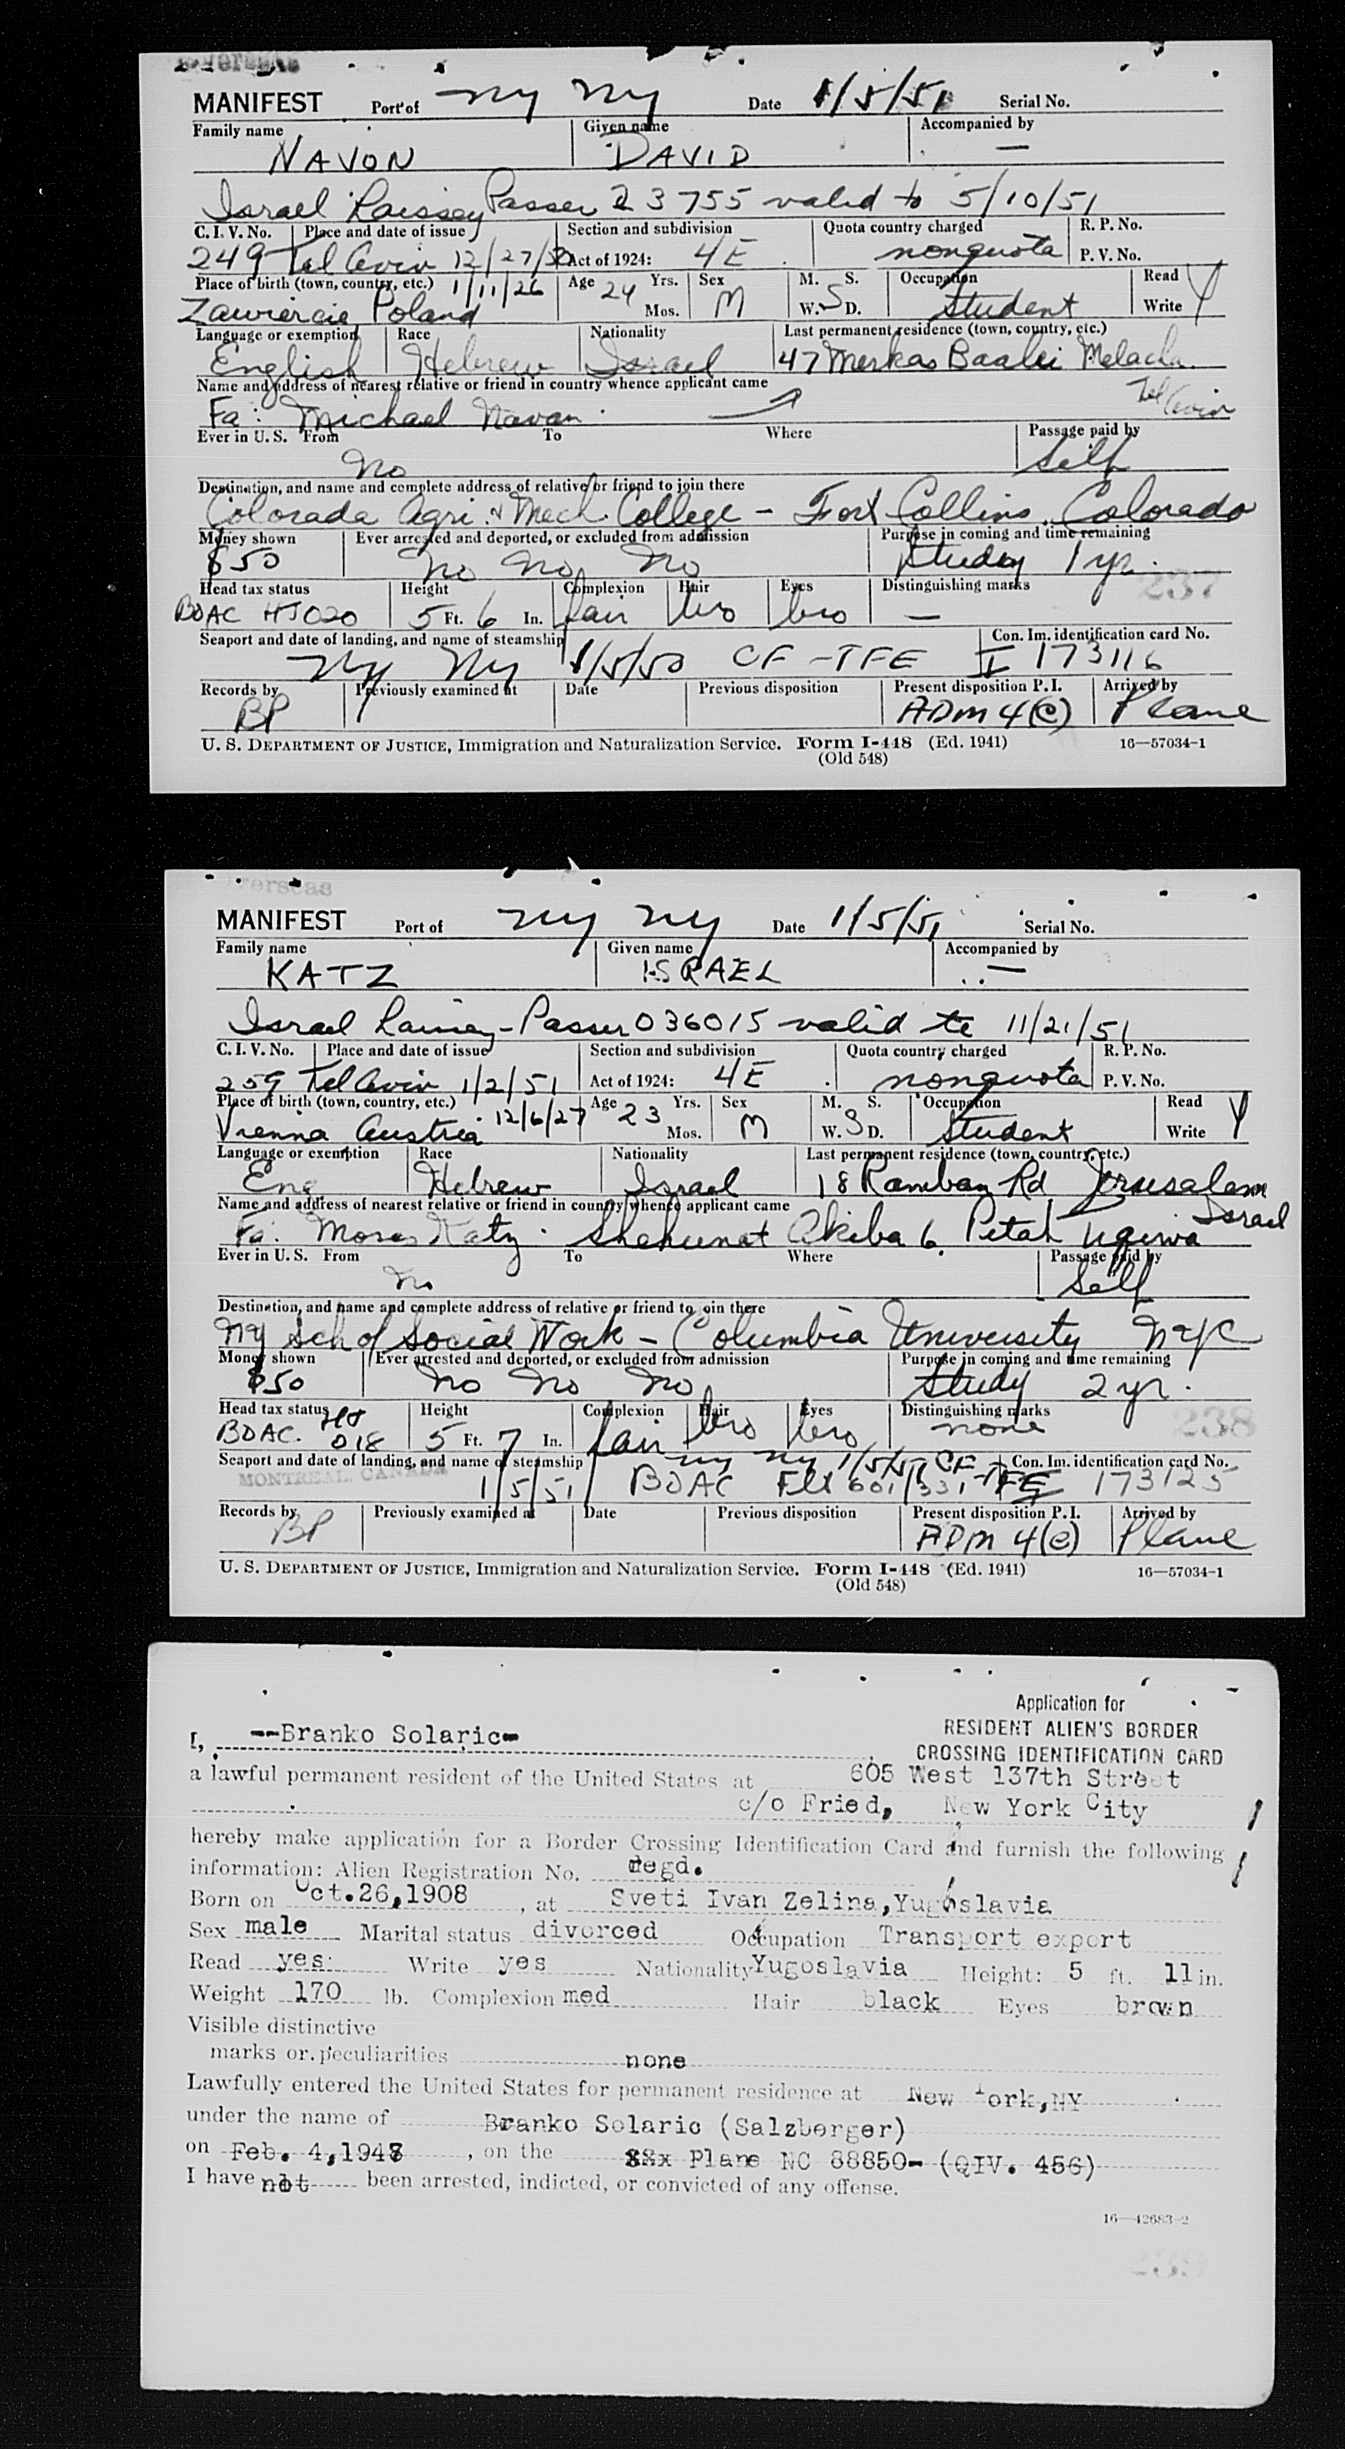 MANIFEST Port of NY NY Date 1/5/51 Serial No.
Family name Given name Accompanied by
NAVON DAVID —
Israel Laissey Passer 23755 valid to 5/10/51
C. I. V. No. Place and date of issue Section and subdivision Quota country charged R. P. No.
249 Tel Aviv 12/27/50 Act of 1924: 4E nonquota P. V. No.
Place of birth (town, country, etc.) 1/11/26 Age 24 Yrs. Sex M. S. Occupation Read Y
Zawiercie Poland Mos. M W. S D. Student Write
Language or exemption Race Nationality Last permanent residence (town, country, etc.)
English Hebrew Israel 47 Merkas Baalei Melacha
Name and address of nearest relative or friend in country whence applicant came Tel Aviv
Fa: Michael Navon
Ever in U. S. From To Where Passage paid by
No Self
Destination, and name and complete address of relative or friend to join there
Colorada Agri. & Mech. College - Fort Collins, Colorado
Money shown Ever arrested and deported, or excluded from admission Purpose in coming and time remaining
$50 No No No Study 1 yr.
237
Head tax status Height Complexion Hair Eyes Distinguishing marks
BOAC HJ020 5 Ft. 6 In. fair bro bro —
Seaport and date of landing, and name of steamship Con. Im. identification card No.
NY NY 1/5/50 CF-TFE I 173116
Records by Previously examined at Date Previous disposition Present disposition P. I. Arrived by
BP ADM 4(e) Plane
U. S. DEPARTMENT OF JUSTICE, Immigration and Naturalization Service. Form I-448 (Ed. 1941) 16—57034-1
(Old 548)
MANIFEST Port of NY NY Date 1/5/51 Serial No.
Family name Given name Accompanied by
KATZ ISRAEL —
Israel Laissey-Passer 036015 valid to 11/21/51
C. I. V. No. Place and date of issue Section and subdivision Quota country charged R. P. No.
259 Tel Aviv 1/2/51 Act of 1924: 4E nonquota P. V. No.
Place of birth (town, country, etc.) 12/6/27 Age 23 Yrs. Sex M. S. Occupation Read Y
Vienna Austria Mos. M W. S D. Student Write
Language or exemption Race Nationality Last permanent residence (town, country, etc.)
Eng Hebrew Israel 18 Ramban Rd Jerusalem
Name and address of nearest relative or friend in country whence applicant came Israel
Fa: Moses Katz Shehunat Akiba 6, Petah Tiqwa
Ever in U. S. From To Where Passage paid by
No Self
Destination, and name and complete address of relative or friend to join there
NY Sch of Social Work - Columbia University NYC
Money shown Ever arrested and deported, or excluded from admission Purpose in coming and time remaining
$50 No No No Study 2 yr.
238
Head tax status Height Complexion Hair Eyes Distinguishing marks
BOAC. HJ 018 5 Ft. 7 In. fair bro bro none
Seaport and date of landing, and name of steamship NY NY 1/5/51 CF-TFE Con. Im. identification card No.
MONTREAL, CANADA 1/5/51 BOAC Flt 601/331 I 173125
Records by Previously examined at Date Previous disposition Present disposition P. I. Arrived by
BP ADM 4(e) Plane
U. S. DEPARTMENT OF JUSTICE, Immigration and Naturalization Service. Form I-448 (Ed. 1941) 16—57034-1
(Old 548)
Application for
RESIDENT ALIEN'S BORDER
CROSSING IDENTIFICATION CARD
I, --Branko Solaric-
a lawful permanent resident of the United States at 605 West 137th Street
c/o Fried, New York City
hereby make application for a Border Crossing Identification Card and furnish the following
information: Alien Registration No. regd.
Born on Oct.26,1908, at Sveti Ivan Zelina,Yugoslavia
Sex male Marital status divorced Occupation Transport export
Read yes Write yes Nationality Yugoslavia Height: 5 ft. 11 in.
Weight 170 lb. Complexion med Hair black Eyes brown
Visible distinctive
marks or peculiarities none
Lawfully entered the United States for permanent residence at New York,NY
under the name of Branko Solaric (Salzberger)
on Feb. 4,1947, on the SSx Plane NC 88850- (QIV. 456)
I have not been arrested, indicted, or convicted of any offense.
16—42683-2